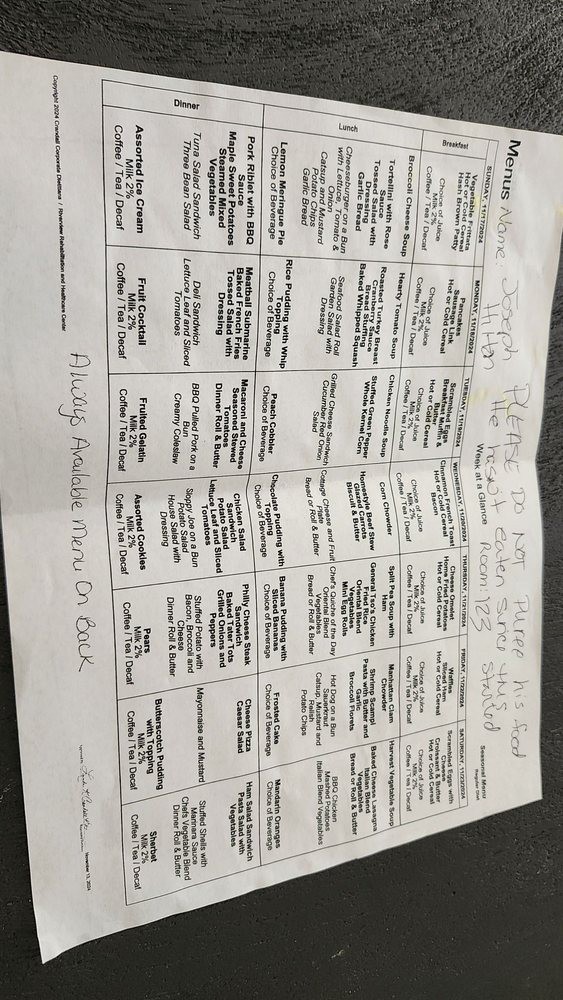 Menus Name Joseph
PLEASE DO NOT Puree his food
He hasn't eaten since this started
Room 123
Week at a Glance
Seasonal Menu
Regular Diet
SUNDAY, 11/17/2024
Breakfast
Vegetable Frittata
Hot or Cold Cereal
Hash Brown Patty
Choice of Juice
Milk 2%
Coffee / Tea / Decaf
Lunch
Broccoli Cheese Soup
Tortellini with Rose
Sauce
Tossed Salad with
Dressing
Garlic Bread
Cheeseburger on a Bun
with Lettuce, Tomato &
Onion
Catsup and Mustard
Potato Chips
Garlic Bread
Lemon Meringue Pie
Choice of Beverage
Dinner
Pork Riblet with BBQ
Sauce
Maple Sweet Potatoes
Steamed Mixed
Vegetables
Tuna Salad Sandwich
Three Bean Salad
Assorted Ice Cream
Milk 2%
Coffee / Tea / Decaf
MONDAY, 11/18/2024
Pancakes
Sausage Link
Hot or Cold Cereal
Choice of Juice
Milk 2%
Coffee / Tea / Decaf
Hearty Tomato Soup
Roasted Turkey Breast
Cranberry Sauce
Bread Stuffing
Baked Whipped Squash
Seafood Salad Roll
Garden Salad with
Dressing
Rice Pudding with Whip
Topping
Choice of Beverage
Meatball Submarine
Baked French Fries
Tossed Salad with
Dressing
Deli Sandwich
Lettuce Leaf and Sliced
Tomatoes
Fruit Cocktail
Milk 2%
Coffee / Tea / Decaf
TUESDAY, 11/19/2024
Scrambled Eggs
Breakfast Muffin &
Butter
Hot or Cold Cereal
Choice of Juice
Milk 2%
Coffee / Tea / Decaf
Chicken Noodle Soup
Stuffed Green Pepper
Whole Kernel Corn
Grilled Cheese Sandwich
Cucumber Red Onion
Salad
Peach Cobbler
Choice of Beverage
Macaroni and Cheese
Seasoned Stewed
Tomatoes
Dinner Roll & Butter
BBQ Pulled Pork on a
Bun
Creamy Coleslaw
Fruited Gelatin
Milk 2%
Coffee / Tea / Decaf
WEDNESDAY, 11/20/2024
Cinnamon French Toast
Hot or Cold Cereal
Bacon
Choice of Juice
Milk 2%
Coffee / Tea / Decaf
Corn Chowder
Homestyle Beef Stew
Glazed Carrots
Biscuit & Butter
Cottage Cheese and Fruit
Plate
Bread or Roll & Butter
Chocolate Pudding with
Topping
Choice of Beverage
Chicken Salad
Sandwich
Potato Salad
Lettuce Leaf and Sliced
Tomatoes
Sloppy Joe on a Bun
Potato Salad
House Salad with
Dressing
Assorted Cookies
Milk 2%
Coffee / Tea / Decaf
THURSDAY, 11/21/2024
Cheese Omelet
Home Fried Potatoes
Hot or Cold Cereal
Choice of Juice
Milk 2%
Coffee / Tea / Decaf
Split Pea Soup with
Ham
General Tso's Chicken
Fried Rice
Oriental Blend
Vegetables
Mini Egg Rolls
Chef's Quiche of the Day
Oriental Blend
Vegetables
Bread or Roll & Butter
Banana Pudding with
Sliced Bananas
Choice of Beverage
Philly Cheese Steak
Sandwich
Baked Tater Tots
Grilled Onions and
Peppers
Stuffed Potato with
Bacon, Broccoli and
Cheese
Dinner Roll & Butter
Pears
Milk 2%
Coffee / Tea / Decaf
FRIDAY, 11/22/2024
Waffles
Sliced Ham
Hot or Cold Cereal
Choice of Juice
Milk 2%
Coffee / Tea / Decaf
Manhattan Clam
Chowder
Shrimp Scampi
Pasta with Butter and
Garlic
Broccoli Florets
Hot Dog on a Bun
Sauerkraut
Catsup, Mustard and
Relish
Potato Chips
Frosted Cake
Choice of Beverage
Cheese Pizza
Caesar Salad
Mayonnaise and Mustard
Butterscotch Pudding
with Topping
Milk 2%
Coffee / Tea / Decaf
SATURDAY, 11/23/2024
Scrambled Eggs with
Cheese
Croissant & Butter
Hot or Cold Cereal
Choice of Juice
Milk 2%
Coffee / Tea / Decaf
Harvest Vegetable Soup
Baked Cheese Lasagna
Italian Blend
Vegetables
Bread or Roll & Butter
BBQ Chicken
Mashed Potatoes
Italian Blend Vegetables
Mandarin Oranges
Choice of Beverage
Ham Salad Sandwich
Pasta Salad with
Vegetables
Stuffed Shells with
Marinara Sauce
Chef's Vegetable Blend
Dinner Roll & Butter
Sherbet
Milk 2%
Coffee / Tea / Decaf
Copyright 2024 Crandall Corporate Dietitians / Riverview Rehabilitation and Healthcare Center
Always Available Menu On Back
November 13, 2024